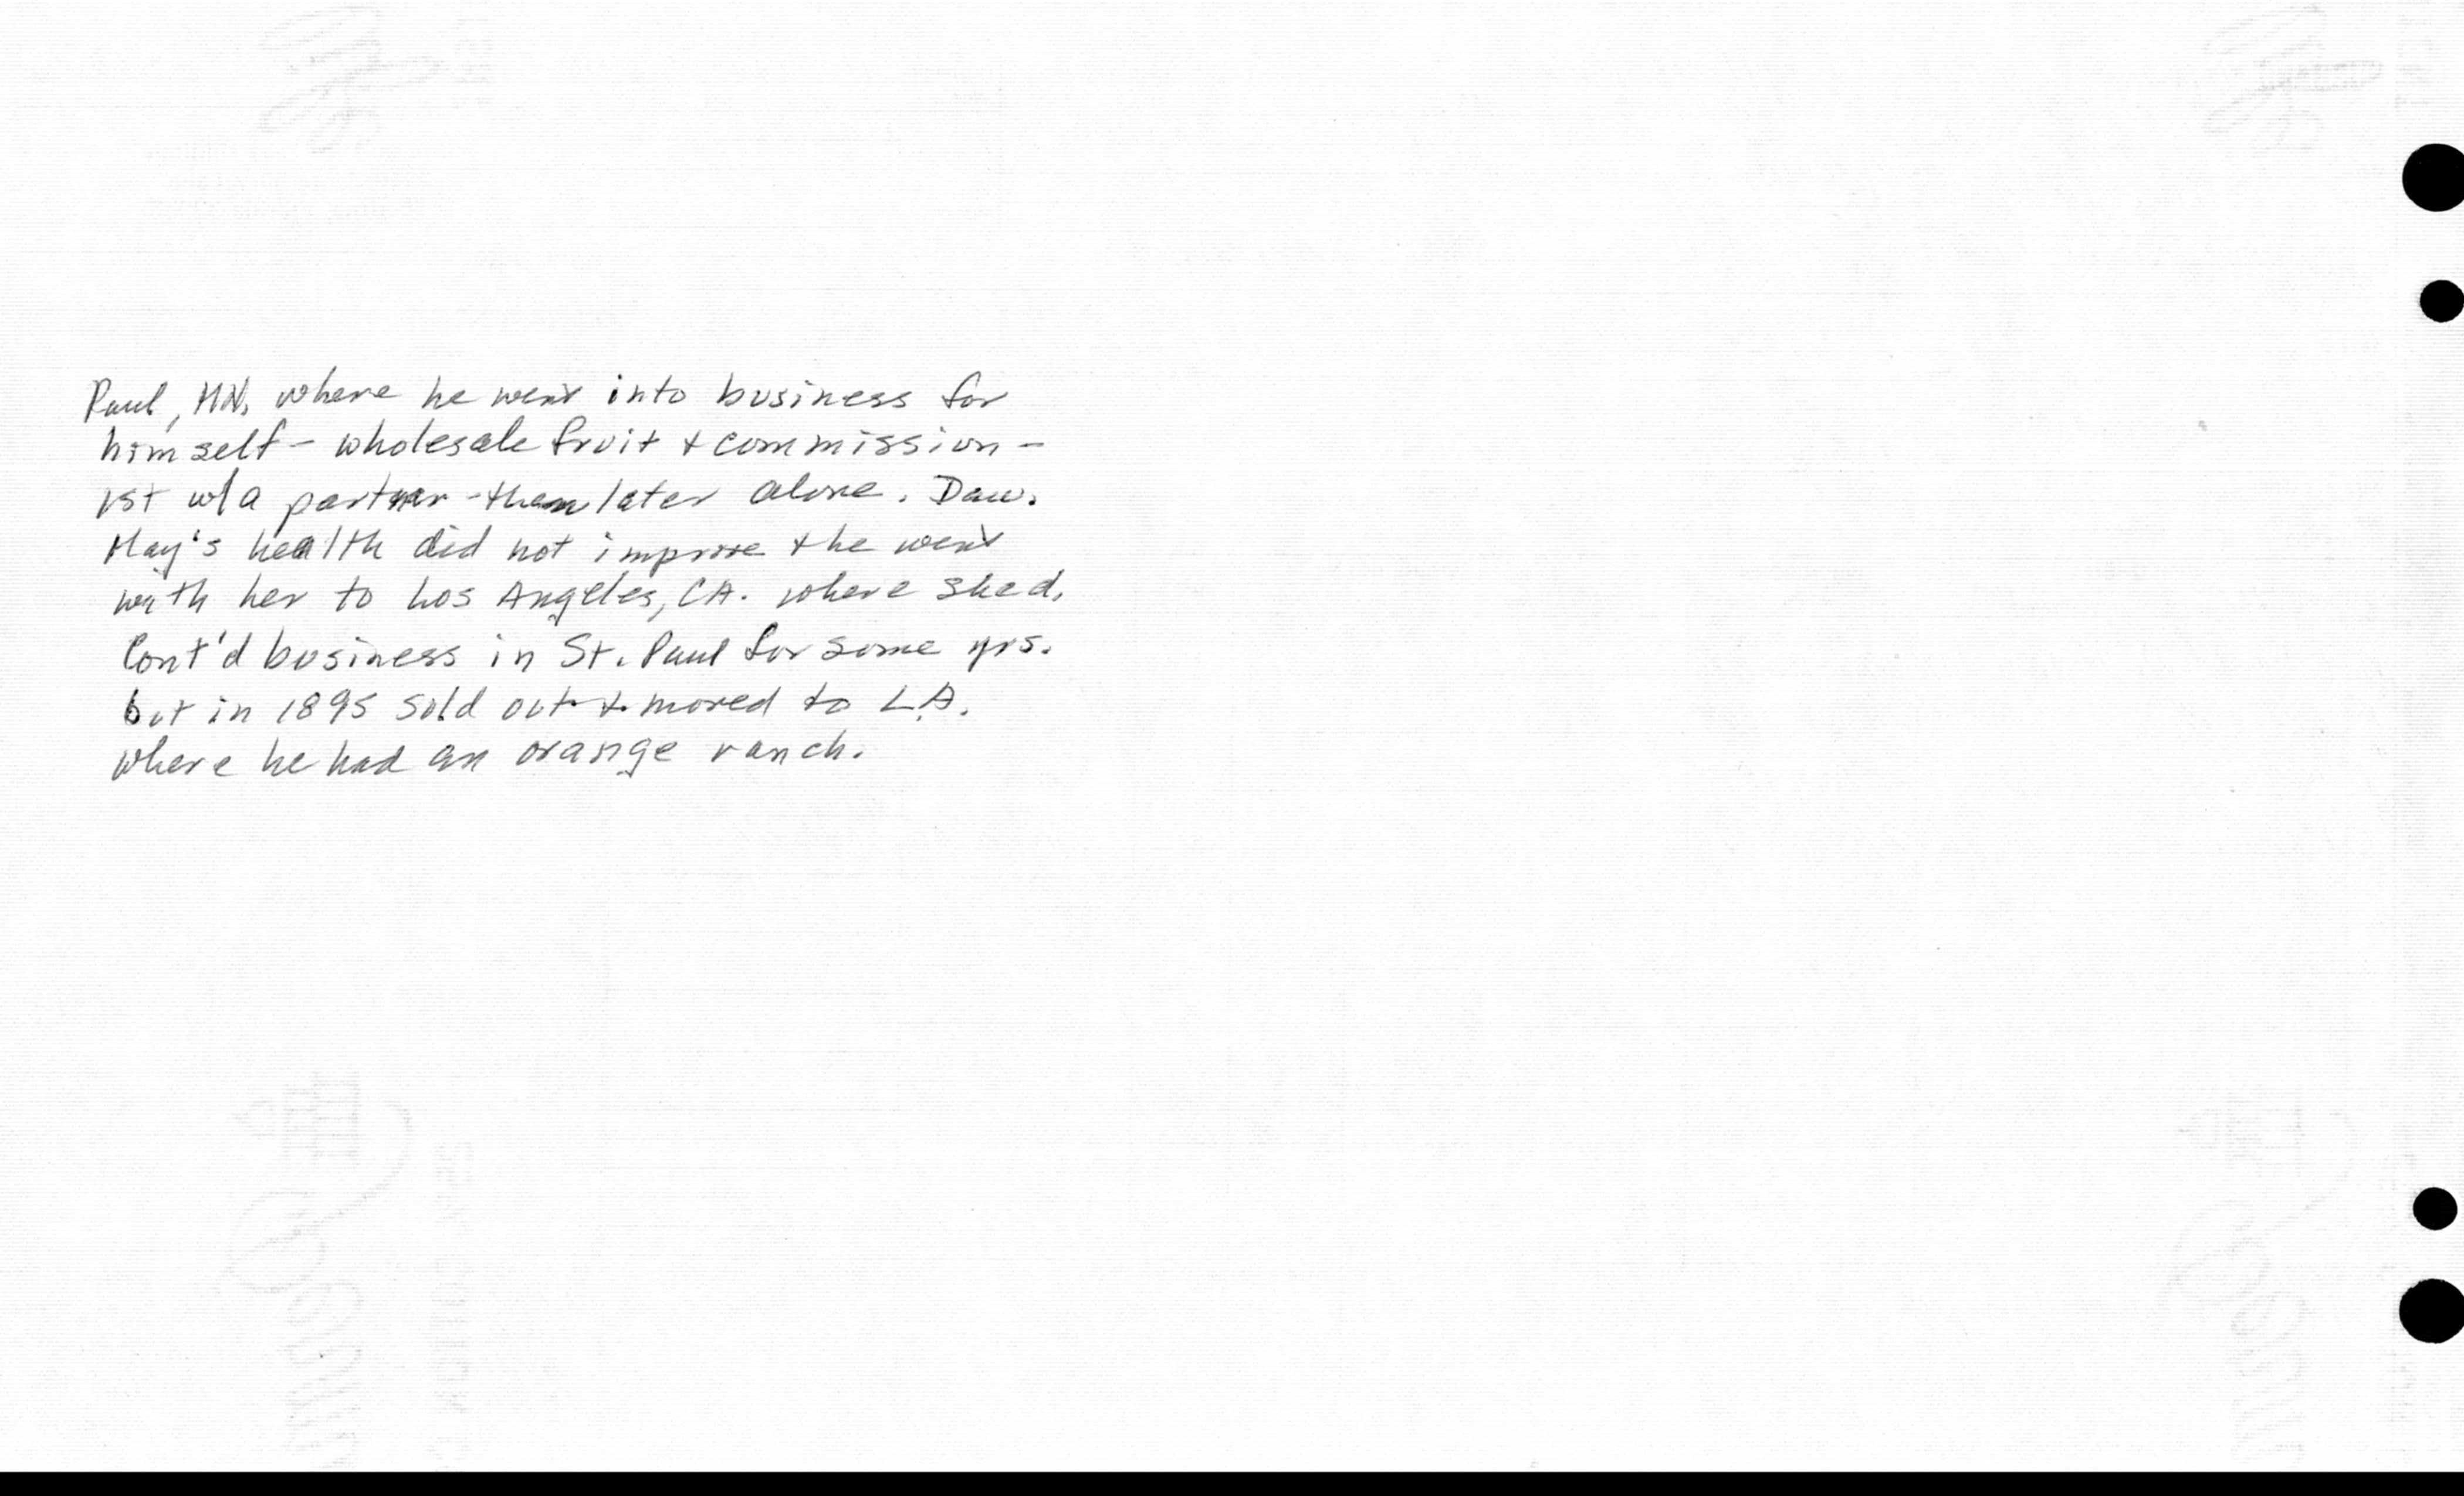 Paul, MN, where he went into business for
himself - wholesale fruit & commission -
1st w/a partner - then later alone. Dau.
May's health did not improve & he went
with her to Los Angeles, CA. where she d.
Cont'd business in St. Paul for some yrs.
but in 1895 sold out & moved to L.A.
where he had an orange ranch.